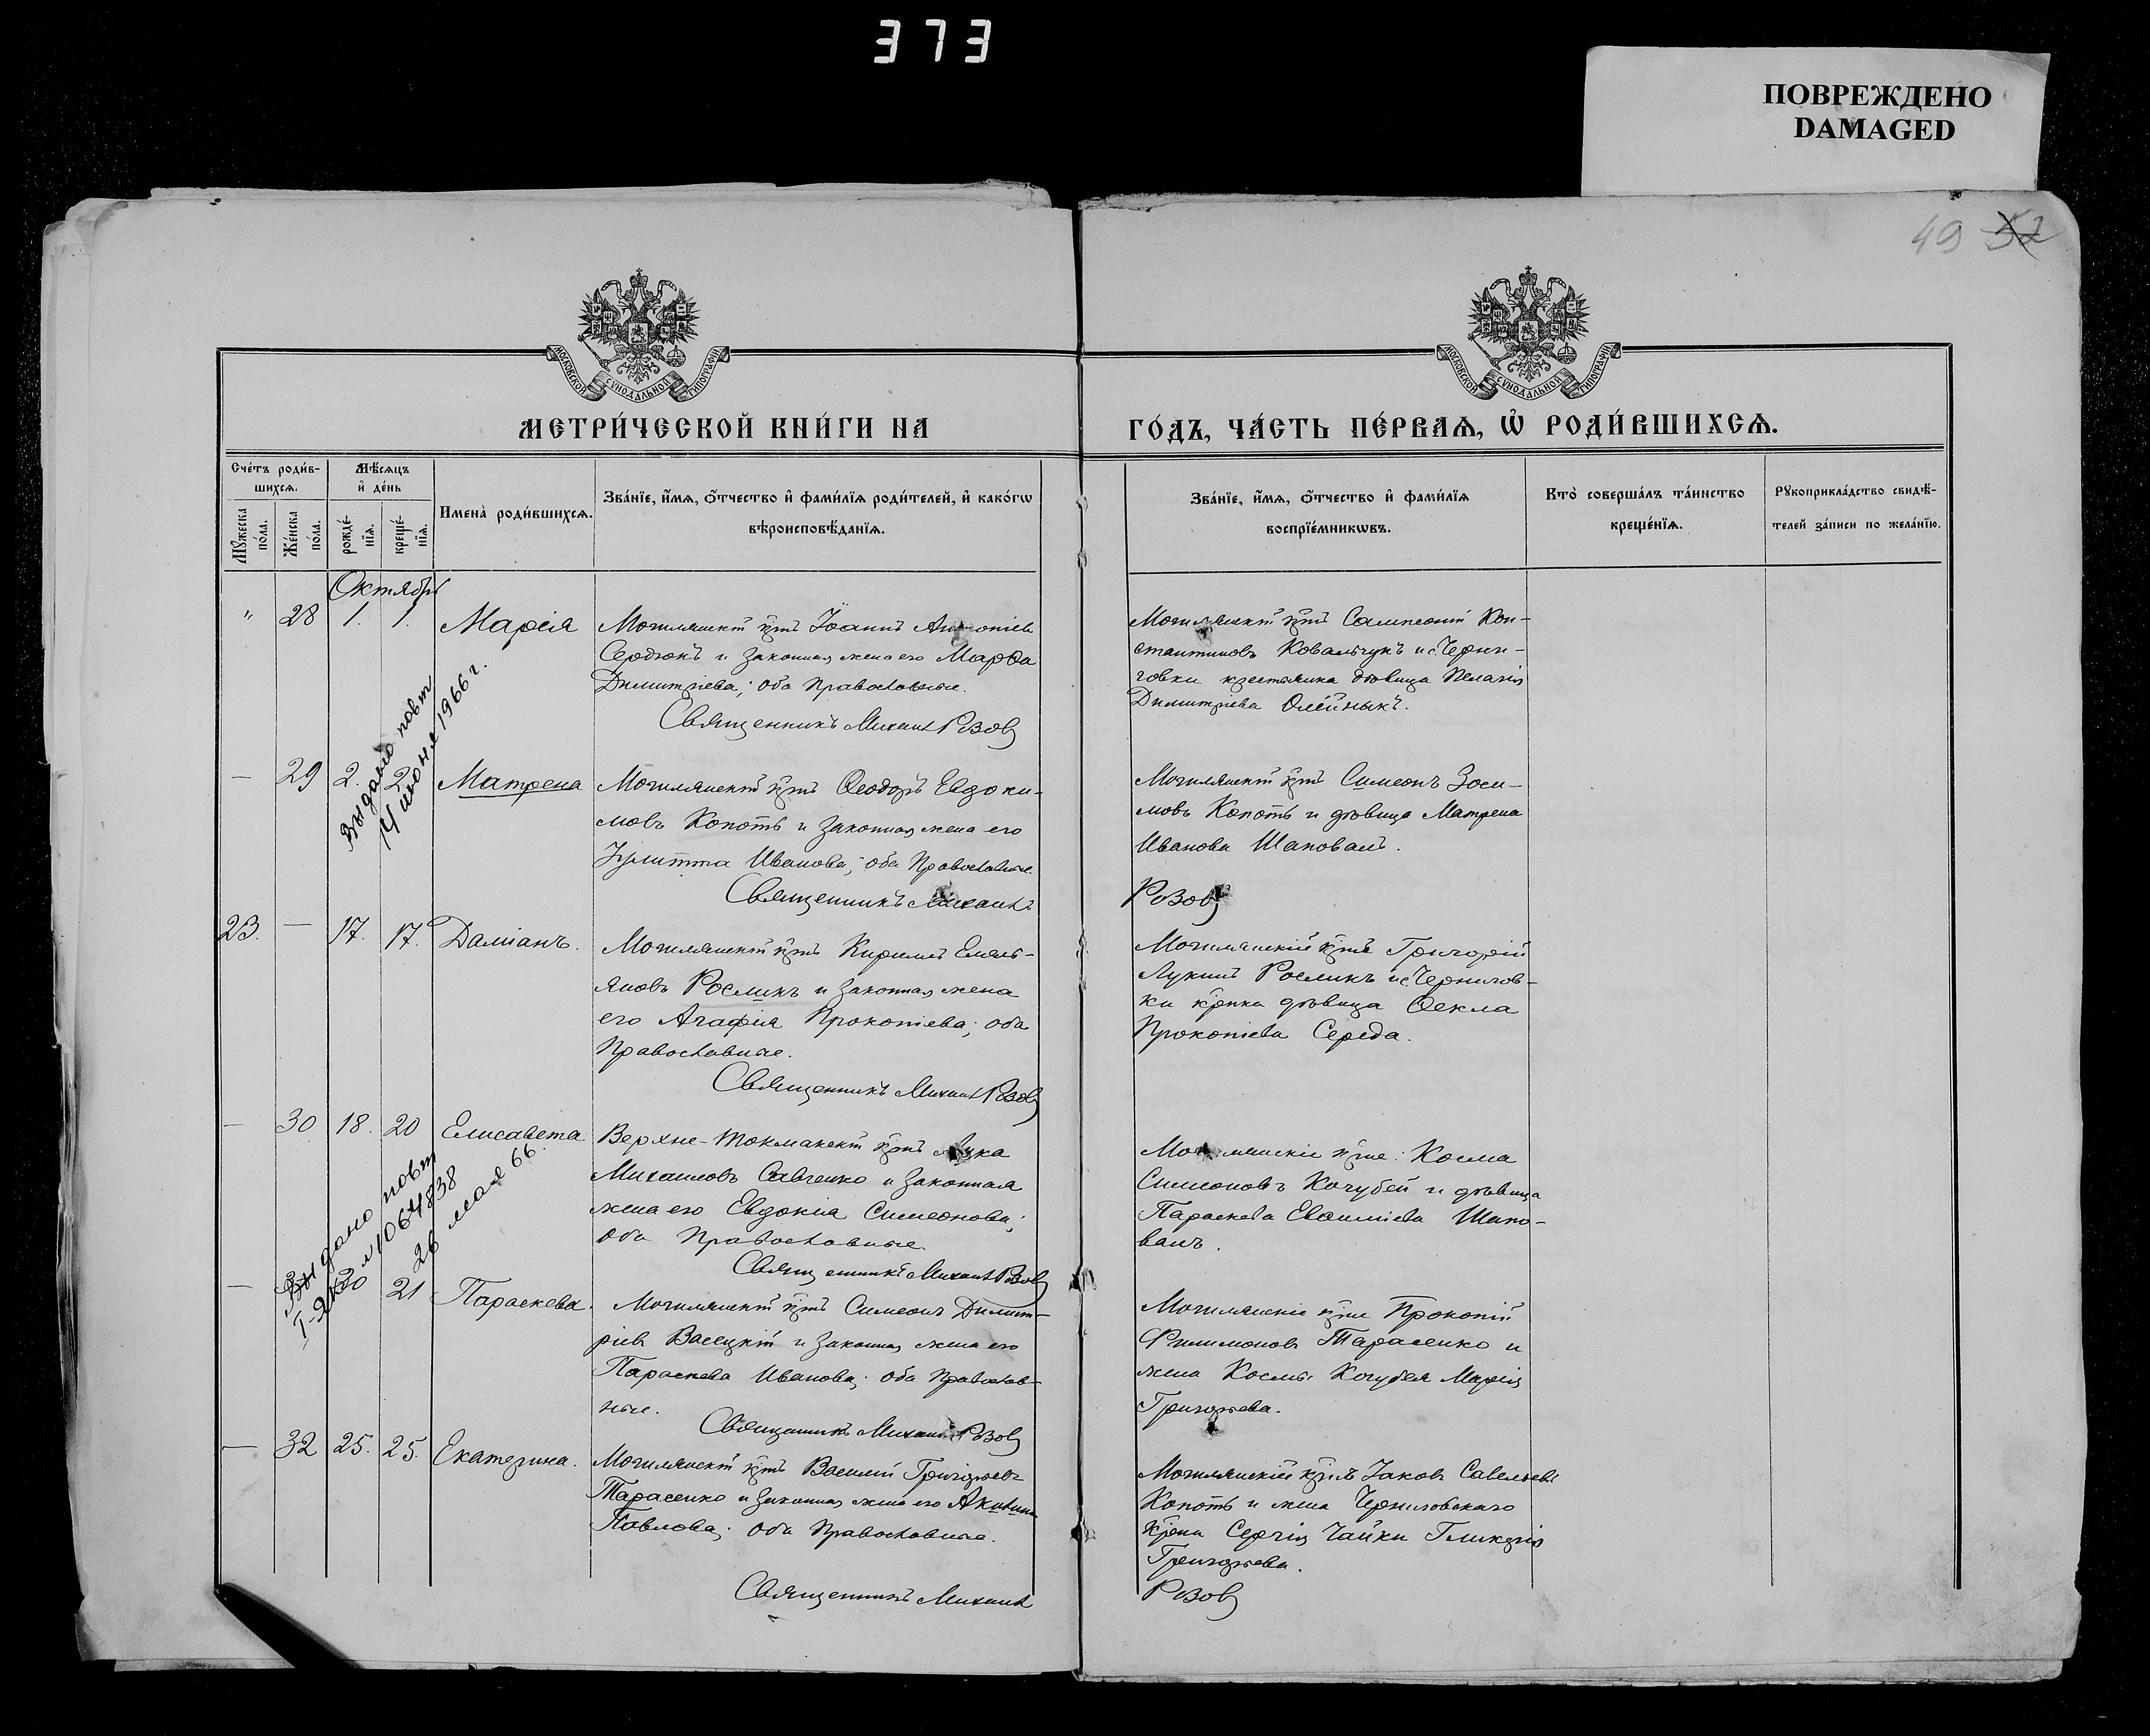 373
ПОВРЕЖДЕНО
DAMAGED
49 52
МОСКОВСКОЙ СѴНОДАЛЬНОЙ ТИПОГРАФІИ
МОСКОВСКОЙ СѴНОДАЛЬНОЙ ТИПОГРАФІИ
МЕТРИ́ЧЕСКОЙ КНИ́ГИ НА
ГО́ДЪ, ЧА́СТЬ ПЕ́РВАѦ, Ѽ РОДИ́ВШИХСѦ.
Сче́тъ роди́в-
шихсѧ.
Мꙋ́жеска по́ла.
Же́нска по́ла.
Мѣ́сѧцъ
и҆ де́нь
рожде́-
нїѧ.
креще́-
нїѧ.
Имена̀ роди́вшихсѧ.
Зва́нїе, и҆́мѧ, ѻ҆́тчество и҆ фами́лїѧ роди́телей, и҆ како́гѡ
вѣроисповѣ́данїѧ.
Зва́нїе, и҆́мѧ, ѻ҆́тчество и҆ фами́лїѧ
воспрїе́мникѡвъ.
Кто̀ соверша́лъ та́инство
креще́нїѧ.
Рꙋкоприкла́дство свидѣ́-
телей за́писи по жела́нїю.
Октябрь
" 28 1. 1. Марѳія
Могилянскій крт҃ъ Іоаннъ Антоніевъ
Сердюкъ и законная жена его Марѳа
Димитріева; оба Православные.
Священникъ Михаилъ Розовъ
Могилянскій крт҃ъ Сампсоній Кон-
стантиновъ Ковальчукъ и с. Черни-
говки крестьянка дѣвица Пелагія
Димитріева Олейныкъ.
Выдано повт
14 июня 1966 г.
— 29 2. 2. Матрена
Могилянскій крт҃ъ Ѳеодоръ Евдоки-
мовъ Копоть и законная жена его
Іулитта Иванова; оба Православные.
Священникъ Михаилъ
Могилянскій крт҃ъ Симеонъ Зоси-
мовъ Копоть и дѣвица Матрена
Иванова Шаповалъ.
Розовъ
23. — 17. 17. Даміанъ.
Могилянскій крт҃ъ Кириллъ Емель-
яновъ Росликъ и законная жена
его Агафія Прокопіева; оба
Православные.
Священникъ Михаилъ Розовъ
Могилянскій крт҃ъ Григорій
Лукинъ Росликъ и с. Чернигов-
ки крт҃нка дѣвица Ѳекла
Прокопіева Середа.
— 30 18. 20 Елисавета.
Верхне-Токмакскій крт҃ъ Лука
Михаиловъ Савченко и законная
жена его Евдокія Симеонова;
оба Православные.
Священникъ Михаилъ Розовъ
Могилянскіе крт҃не: Косма
Симеоновъ Кочубей и дѣвица
Параскева Евѳиміева Шапо-
валъ.
Выдано повт
1064838
26 мая 66
— 20 21 Параскева.
Могилянскій крт҃ъ Симеонъ Димит-
ріевъ Васецкій и законная жена его
Параскева Иванова; оба Православ-
ные.
Священникъ Михаилъ Розовъ
Могилянскіе крт҃не Прокопій
Филимоновъ Тарасенко и
жена Космы Кочубея Марія
Григорьева.
— 32 25. 25. Екатерина.
Могилянскій крт҃ъ Василій Григорьевъ
Тарасенко и законная жена его Акилина
Павлова; оба Православные.
Священникъ Михаилъ
Могилянскій крт҃ъ Іаковъ Савельевъ
Копоть и жена Черниговскаго
крт҃на Сергія Чайки Гликерія
Григорьева.
Розовъ